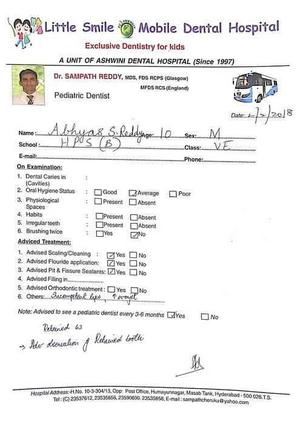 Little Smile Mobile Dental Hospital
Exclusive Dentistry for kids
A UNIT OF ASHWINI DENTAL HOSPITAL (Since 1997)
Dr. SAMPATH REDDY, MDS, FDS RCPS (Glasgow)
MFDS RCS (England)
Pediatric Dentist
Date: 2/2/2018
Name: Abhyas S. Reddy 10 Sex: M
School: HPS (B) Class: VE
E-mail: Phone:
On Examination:
1. Dental Caries in : (Cavities)
2. Oral Hygiene Status : Good Average Poor
3. Physiological Spaces : Present Absent
4. Habits : Present Absent
5. Irregular teeth : Present Absent
6. Brushing twice : Yes No
Adviced Treatment:
1. Advised Scaling/Cleaning : Yes No
2. Advised Flouride application: Yes No
3. Advised Pit & Fissure Sealants: Yes No
4. Advised Filling in
5. Advised Orthodontic treatment : Yes No
6. Others: Incompetent lips,
Note: Advised to see a pediatric dentist every 3-6 months Yes No
Retained 63
Adv of Retained tooth
Hospital Address: H.No. 10-3-304/13, Opp: Post Office, Humayunnagar, Masab Tank, Hyderabad - 500 028. T.S.
Tel: (C) 23537612, 23535658, 23590690, 23535858, E-mail : sampathcheruku@yahoo.com